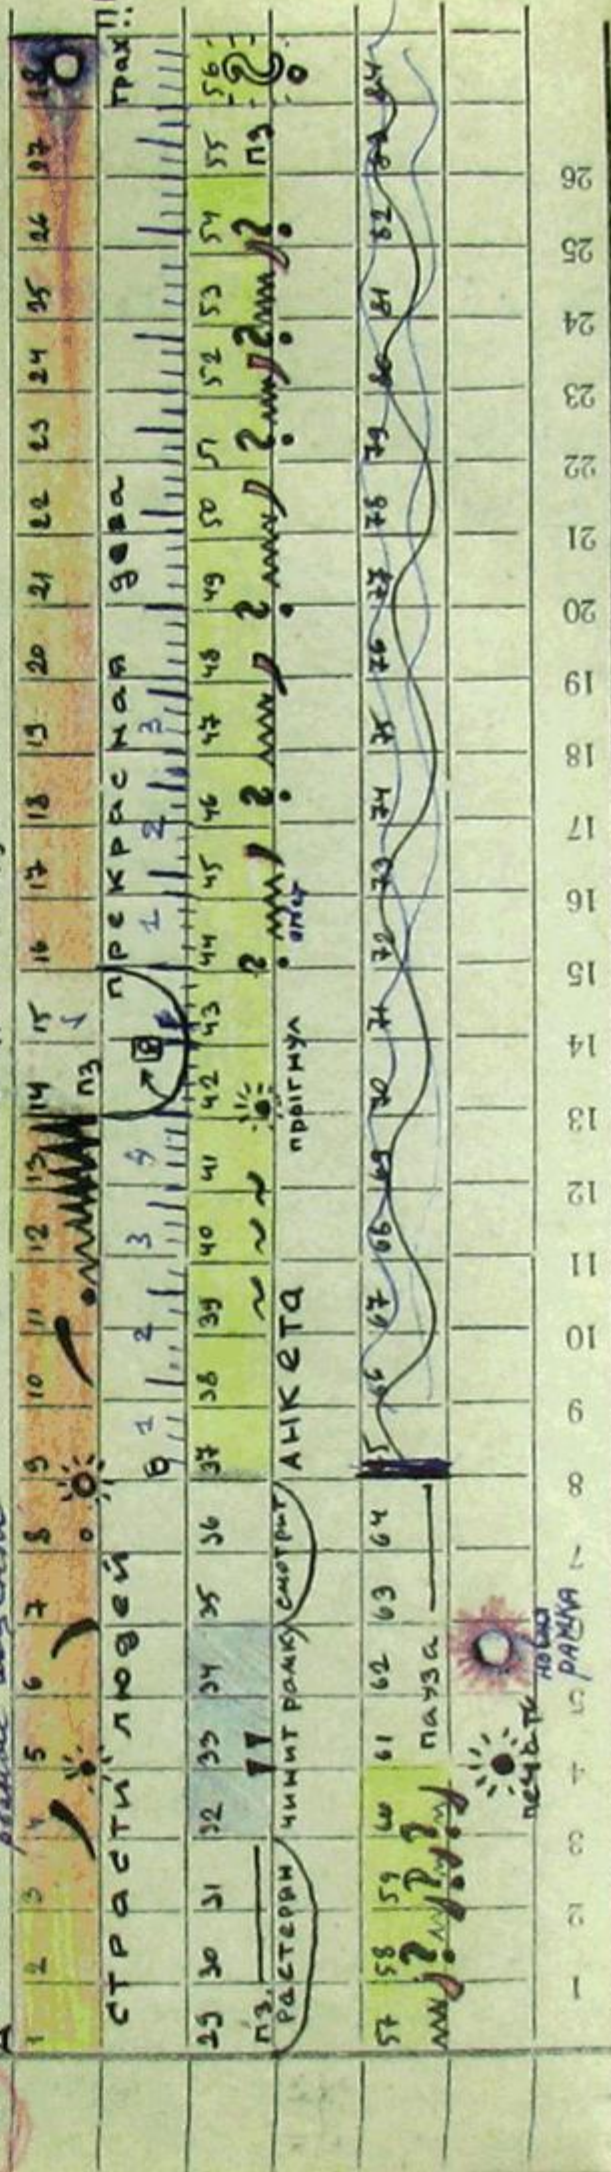 1 2 3 4 5 6 7 8 9 10 11 12 13 14 15 16 17 18 19 20 21 22 23 24 25 26 27 28
пз
страсти людей прекрасная дева трах!!
1 2 3 4 1 2 3
29 30 31 32 33 34 35 36 37 38 39 40 41 42 43 44 45 46 47 48 49 50 51 52 53 54 55 56
пз. пз
растерян чинит рамку смотрит анкета прыгнул
57 58 59 60 61 62 63 64 65 66 67 68 69 70 71 72 73 74 75 76 77 78 79 80 81 82 83 84
пауза
печать новая
рамка
1 2 3 4 5 6 7 8 9 10 11 12 13 14 15 16 17 18 19 20 21 22 23 24 25 26